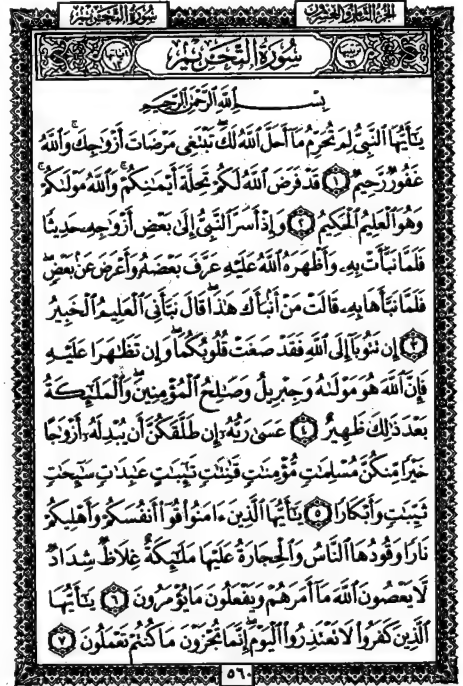 سُورَةُ التَّحْرِيمِ
الجزء الثامن والعشرون
سُورَةُ التَّحْرِيمِ
بِسْمِ اللَّهِ الرَّحْمَٰنِ الرَّحِيمِ
يَٰٓأَيُّهَا ٱلنَّبِىُّ لِمَ تُحَرِّمُ مَآ أَحَلَّ ٱللَّهُ لَكَ ۖ تَبْتَغِى مَرْضَاتَ أَزْوَٰجِكَ ۚ وَٱللَّهُ
غَفُورٌ رَّحِيمٌ ١ قَدْ فَرَضَ ٱللَّهُ لَكُمْ تَحِلَّةَ أَيْمَٰنِكُمْ ۚ وَٱللَّهُ مَوْلَىٰكُمْ ۖ
وَهُوَ ٱلْعَلِيمُ ٱلْحَكِيمُ ٢ وَإِذْ أَسَرَّ ٱلنَّبِىُّ إِلَىٰ بَعْضِ أَزْوَٰجِهِۦ حَدِيثًا
فَلَمَّا نَبَّأَتْ بِهِۦ وَأَظْهَرَهُ ٱللَّهُ عَلَيْهِ عَرَّفَ بَعْضَهُۥ وَأَعْرَضَ عَنۢ بَعْضٍ ۖ
فَلَمَّا نَبَّأَهَا بِهِۦ قَالَتْ مَنْ أَنۢبَأَكَ هَٰذَا ۖ قَالَ نَبَّأَنِىَ ٱلْعَلِيمُ ٱلْخَبِيرُ
٣ إِن تَتُوبَآ إِلَى ٱللَّهِ فَقَدْ صَغَتْ قُلُوبُكُمَا ۖ وَإِن تَظَٰهَرَا عَلَيْهِ
فَإِنَّ ٱللَّهَ هُوَ مَوْلَىٰهُ وَجِبْرِيلُ وَصَٰلِحُ ٱلْمُؤْمِنِينَ ۖ وَٱلْمَلَٰٓئِكَةُ
بَعْدَ ذَٰلِكَ ظَهِيرٌ ٤ عَسَىٰ رَبُّهُۥٓ إِن طَلَّقَكُنَّ أَن يُبْدِلَهُۥٓ أَزْوَٰجًا
خَيْرًا مِّنكُنَّ مُسْلِمَٰتٍ مُّؤْمِنَٰتٍ قَٰنِتَٰتٍ تَٰٓئِبَٰتٍ عَٰبِدَٰتٍ سَٰٓئِحَٰتٍ
ثَيِّبَٰتٍ وَأَبْكَارًا ٥ يَٰٓأَيُّهَا ٱلَّذِينَ ءَامَنُوا۟ قُوٓا۟ أَنفُسَكُمْ وَأَهْلِيكُمْ
نَارًا وَقُودُهَا ٱلنَّاسُ وَٱلْحِجَارَةُ عَلَيْهَا مَلَٰٓئِكَةٌ غِلَاظٌ شِدَادٌ
لَّا يَعْصُونَ ٱللَّهَ مَآ أَمَرَهُمْ وَيَفْعَلُونَ مَا يُؤْمَرُونَ ٦ يَٰٓأَيُّهَا
ٱلَّذِينَ كَفَرُوا۟ لَا تَعْتَذِرُوا۟ ٱلْيَوْمَ ۖ إِنَّمَا تُجْزَوْنَ مَا كُنتُمْ تَعْمَلُونَ ٧
٥٦٠